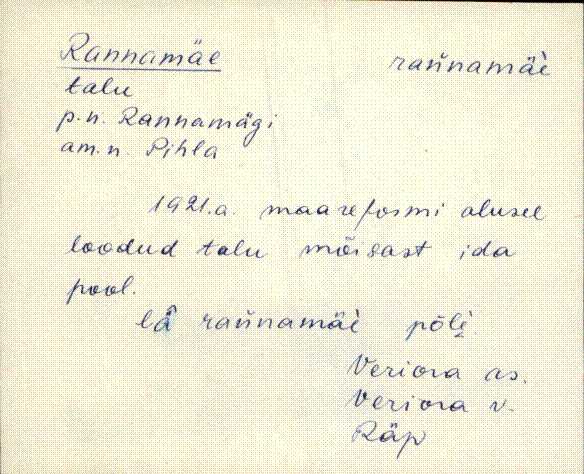 Rannamäe rañnamäè
talu
p.n. Rannamägi
am.n. Pihla
1921.a. maareformi alusel
loodud talu mõisast ida
pool.
lä̂ rañnamäè põlè
Veriora as.
Veriora v.
Räp